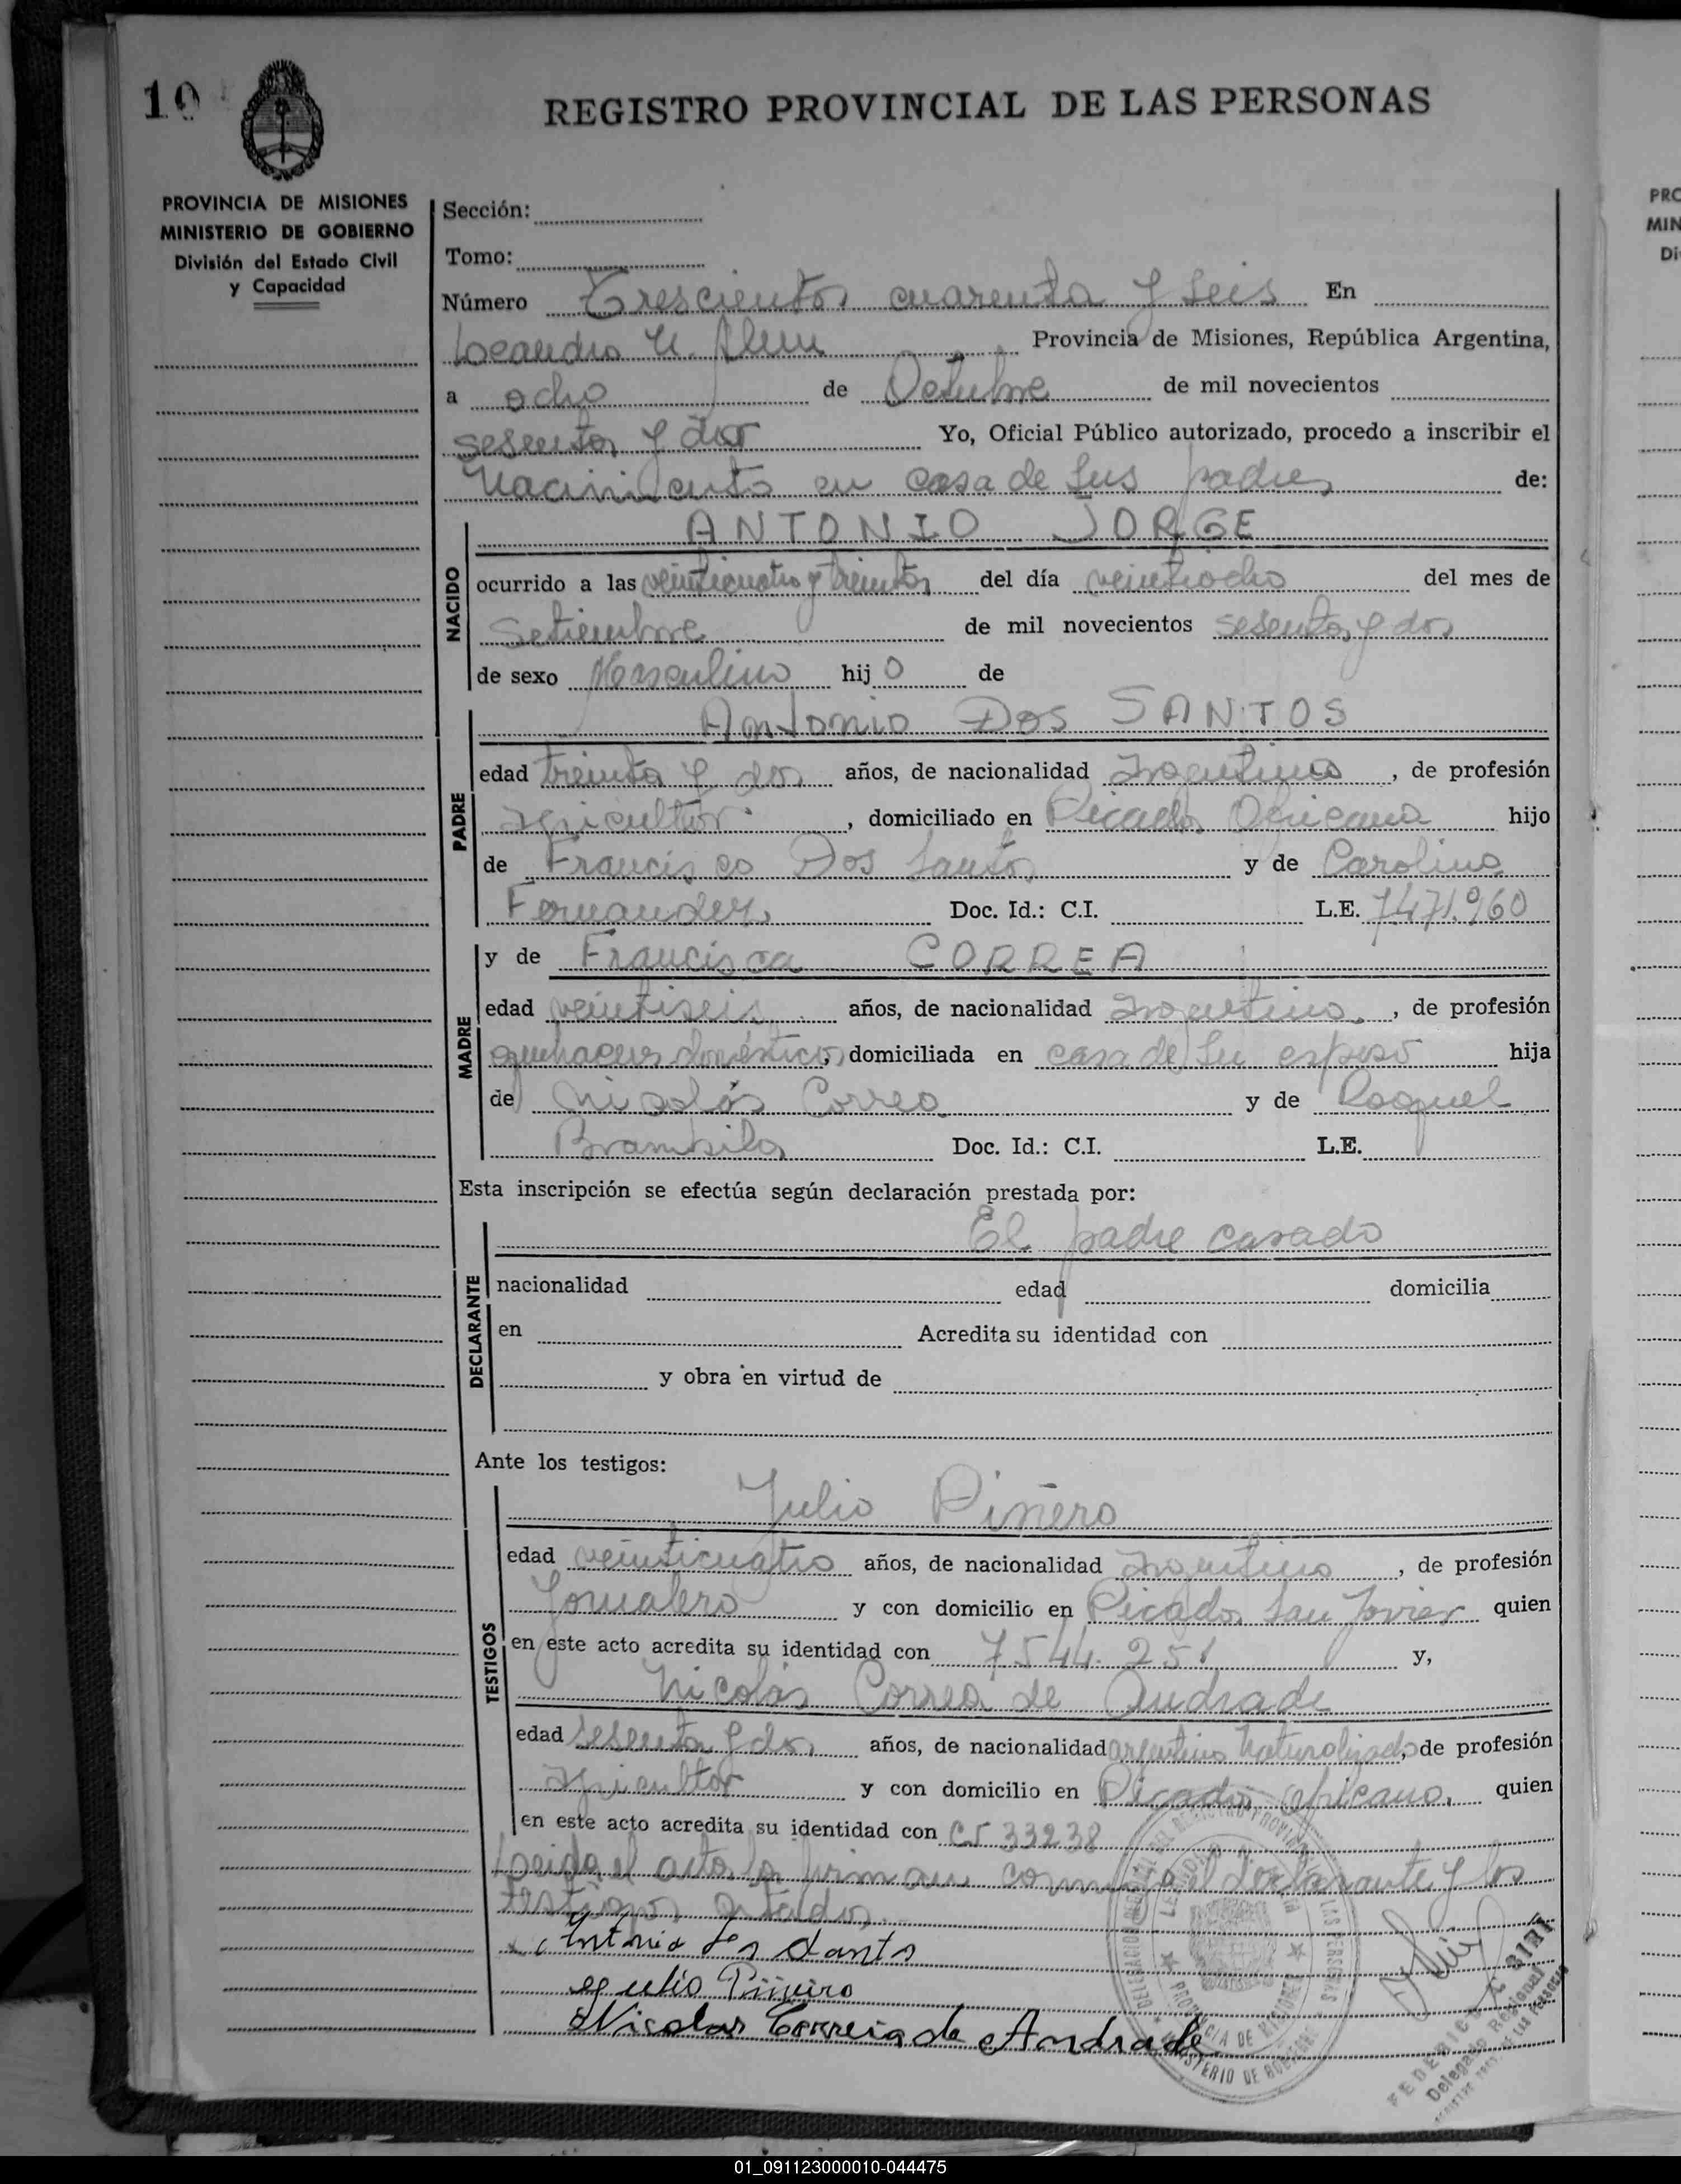 10
REGISTRO PROVINCIAL DE LAS PERSONAS
PROVINCIA DE MISIONES
MINISTERIO DE GOBIERNO
División del Estado Civil
y Capacidad
Sección:
Tomo:
Número Trescientos cuarenta y seis En
Leandro N. Alem Provincia de Misiones, República Argentina,
a ocho de Octubre de mil novecientos
sesenta y dos Yo, Oficial Público autorizado, procedo a inscribir el
Nacimiento en casa de sus padres de:
NACIDO
ANTONIO JORGE
ocurrido a las veinticuatro y treinta del día veintiocho del mes de
Setiembre de mil novecientos sesenta y dos
de sexo Masculino hijo de
PADRE
Antonio Dos SANTOS
edad treinta y dos años, de nacionalidad argentino, de profesión
agricultor, domiciliado en Picada Africana hijo
de Francisco Dos Santos y de Carolina
Fernandez Doc. Id.: C.I. L.E. 7471.960
MADRE
y de Francisca CORREA
edad veintiseis años, de nacionalidad argentina, de profesión
quehaceres domésticos, domiciliada en casa de su esposo hija
de Nicolás Correa y de Raquel
Brambila Doc. Id.: C.I. L.E.
Esta inscripción se efectúa según declaración prestada por:
DECLARANTE
El padre casado
nacionalidad edad domicilia
en Acredita su identidad con
y obra en virtud de
Ante los testigos:
TESTIGOS
Julio Piñero
edad veinticuatro años, de nacionalidad argentino, de profesión
Jornalero y con domicilio en Picada San Javier quien
en este acto acredita su identidad con 7544.251 y,
Nicolás Correa de Andrade
edad sesenta y dos años, de nacionalidad argentino naturalizado, de profesión
agricultor y con domicilio en Picada africana, quien
en este acto acredita su identidad con CI 33238
Leida el acta la firman conmigo el declarante y los
testigos citados.
Antonio dos Santos
Julio Piñeiro
Nicolas Correia de Andrade
PROVINCIA DE MISIONES
MINISTERIO DE GOBIERNO
FEDERICO
Delegado Regional
PRO
MIN
Di
01_091123000010-044475